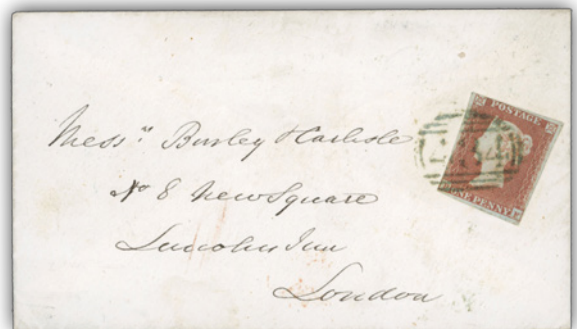 Messrs Burley & Carlisle
No 8 New Square
Lincolns Inn
London
POSTAGE
ONE PENNY